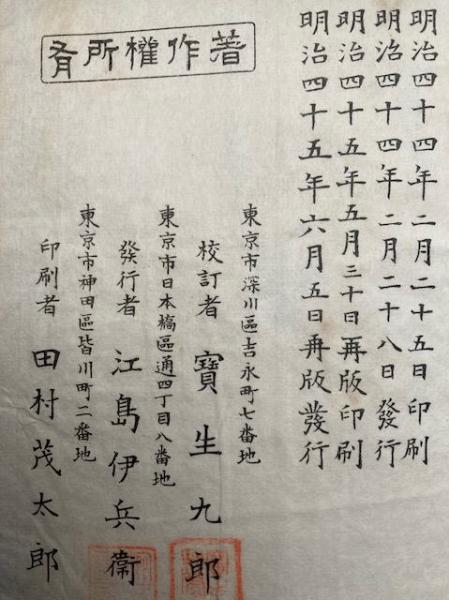 明治四十四年二月二十五日印刷
明治四十四年二月二十八日發行
明治四十五年五月三十日再版印刷
明治四十五年六月五日再版發行
著作權所有
東京市深川區吉永町七番地
校訂者 寶生九郎
東京市日本橋區通四丁目八番地
發行者 江島伊兵衞
東京市神田區皆川町二番地
印刷者 田村茂太郎